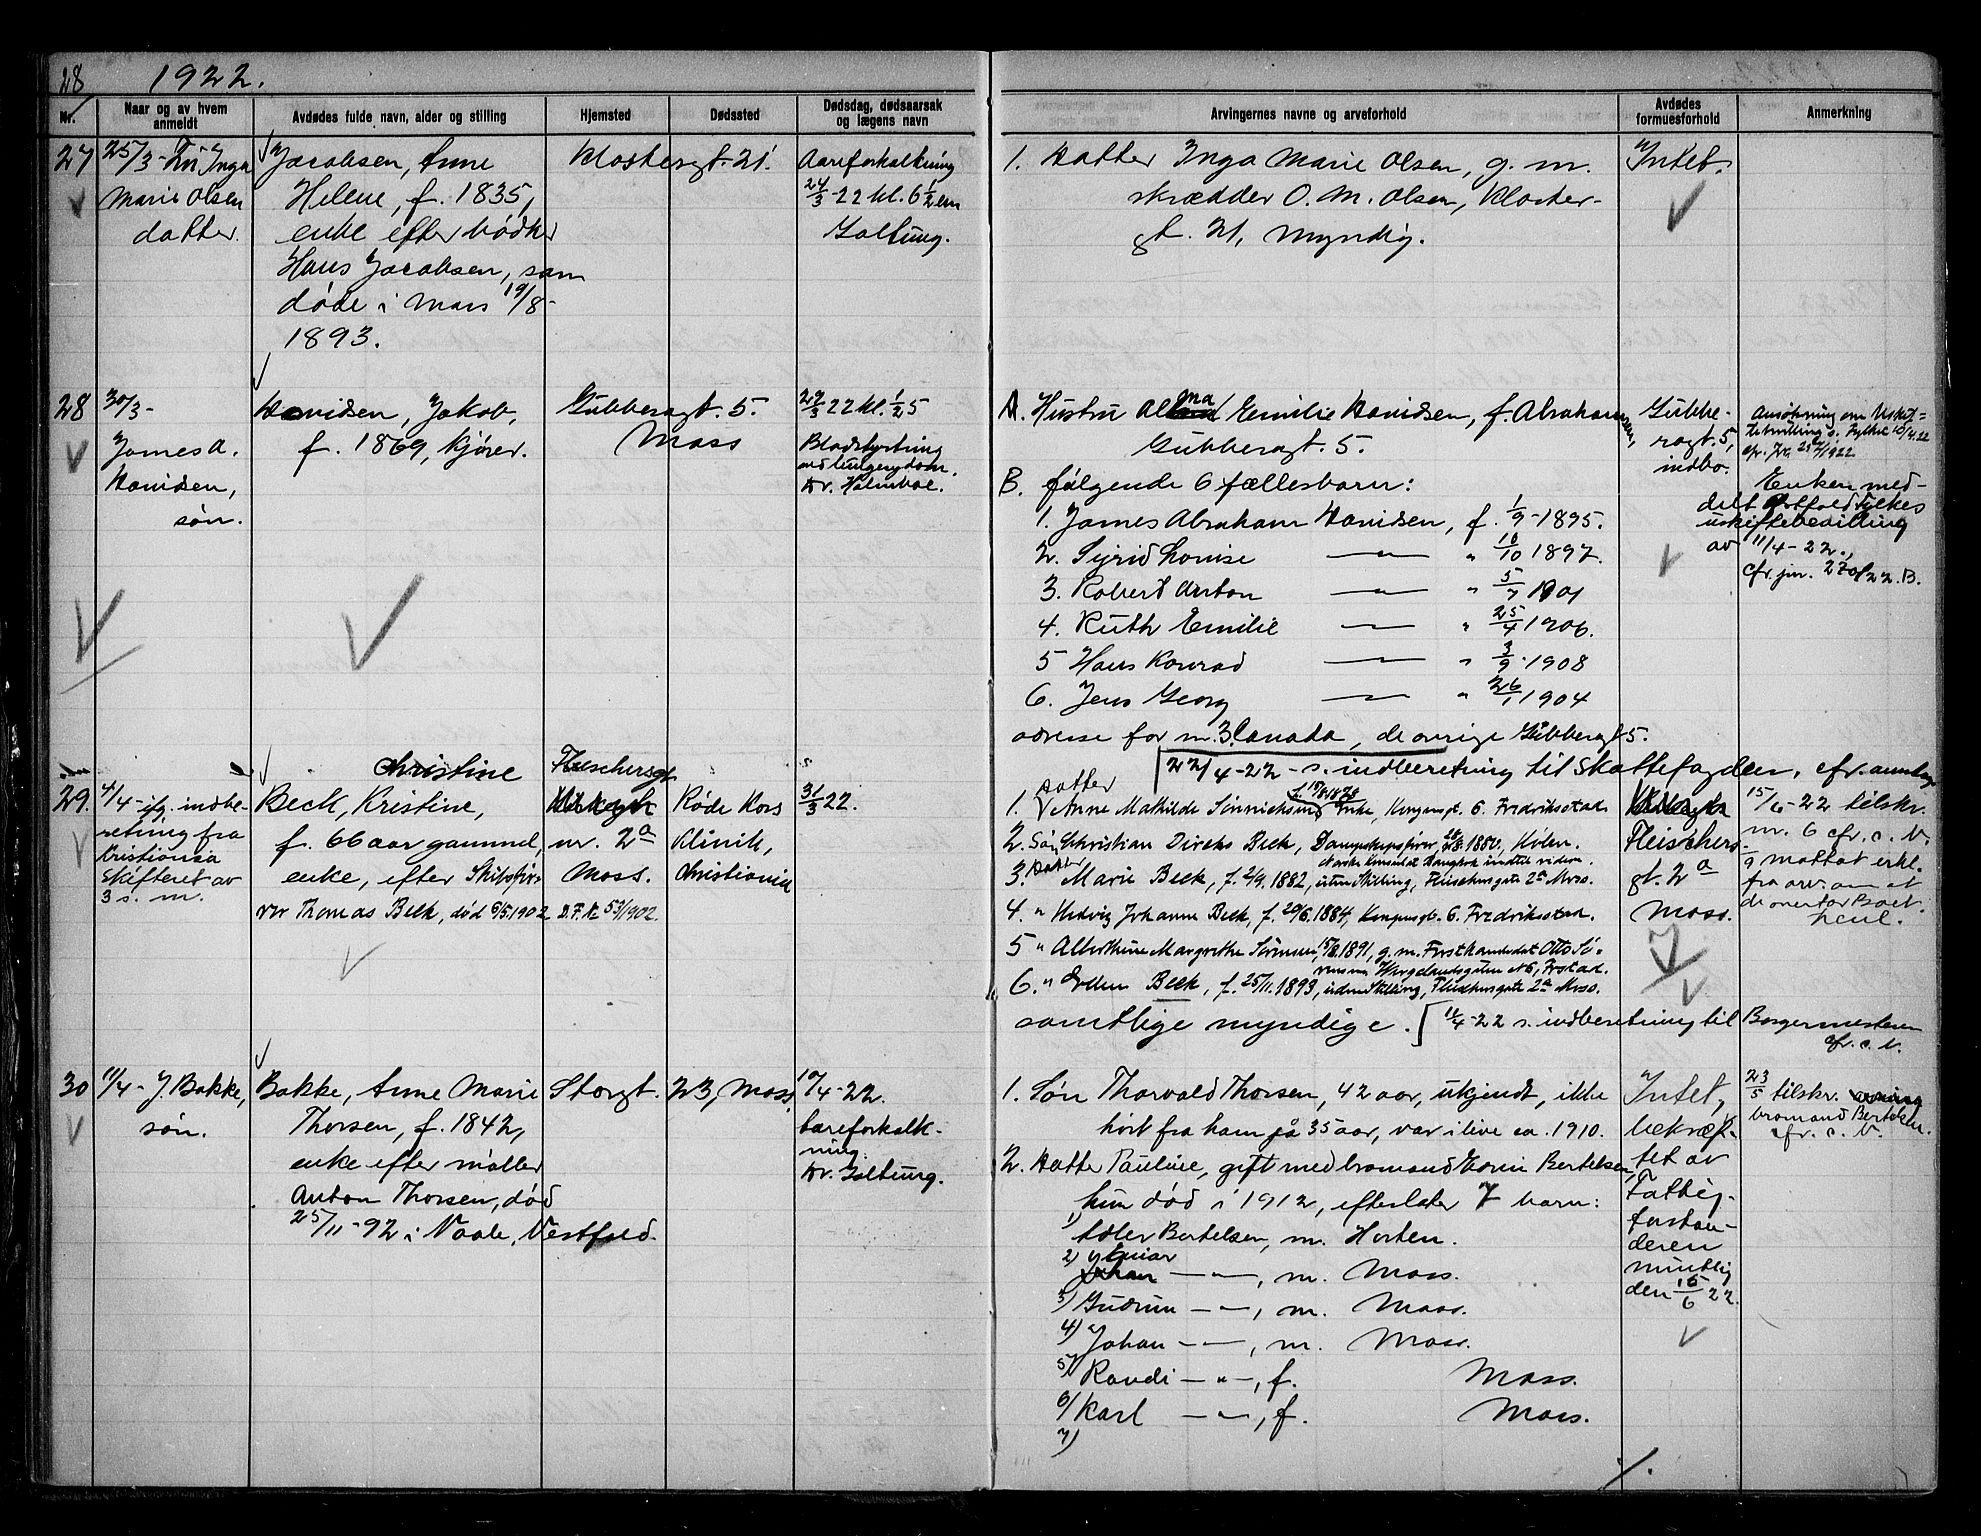 28 1922.
Nr.
Naar og av hvem anmeldt
Avdødes fulde navn, alder og stilling
Hjemsted
Dødssted
Dødsdag, dødsaarsak og lægens navn
Arvingernes navne og arveforhold
Avdødes formuesforhold
Anmerkning
27
25/3- Fru Inga
Marie Olsen
datter.
Jacobsen, Anne
Helene, f. 1835,
enke efter bødker
Hans Jacobsen, som
døde i Moss 19/8-
1893.
Klostergt. 21.
Aareforkalkning
24/3-22 kl. 6 1/2 em
Galtung.
1. Datter Inga Marie Olsen, g. m.
skrædder O. M. Olsen, Kloster-
gt. 21, myndig.
Intet.
28
30/3-
James A.
Davidsen,
søn.
Davidsen, Jakob,
f. 1869, kjører.
Gubberogt. 5.
Moss
29/3 22 kl. 1/2 5
Blodstyrtning
ved lungesygdom.
Dr. Holmboe.
A. Hustru Alma Emilie Davidsen, f. Abrahamsen,
Gubberogt. 5.
B. følgende 6 fællesbarn:
1. James Abraham Davidsen, f. 1/9-1895.
2. Sigrid Lovise — " 10/10 1897.
3. Robert Anton — " 5/7 1901
4. Ruth Emilie — " 25/4 1906.
5 Hans Konrad — " 3/9-1908
6. Jens Georg — " 26/1 1904
adresse for nr. 3 Canada, de øvrige Gubberogt 5.
22/4-22 - s. indberetning til Skattefogden, cfr.
Gubbe-
rogt. 5,
indbo.
Ansökning om Uskift-
cfr. Jr. 1922
Enken med-
delt Østfold Fylkes
uskiftebevilling
av 11/4-22.,
cfr. jnr. 270/22. B.
29.
4/4- ifg. indbe-
retning fra
Kristiania
Skifteret av
3 s. m.
Christine
Beck, Kristine,
f. 66 aar gammel,
enke, efter Skibsfø-
rer Thomas Beck, død 6/5.1902
Fleischersgt
nr. 2a
Moss.
D.F. No 53/1902.
Røde Kors
Klinik,
Christiania
31/3 22.
Datter
1. Anne Mathilde Sønnichsen, f. 19/8 1878 Enke, Kongensgt. 6. Fredriksstad
2. Søn Christian Dircks Beck, Dampskipsfører, 1880,
3. Datter Marie Beck, f. 2/9. 1882, uten Stilling, Fleischersgate 2a Moss.
4. " Hedvig Johanne Beck, f. 29/6. 1884, Kongensgt. 6. Fredriksstad.
5 " Alberthine Margrethe Sörensen, 15/8.1891, g. m. Forstkandidat Otto Sö-
rensen Wergelandsgaten No 6, Fr.stad.
6. " Ellen Beck, f. 25/11. 1893, uden Stilling, Fleischersgate 2a Moss.
samtlige myndige. [11/4-22 s. indberetning til Borgermesteren
cfr. c. V.
Fleischers-
gt. 2a
Moss.
15/6-22 tilskr.
nr. 6 cfr. c. V.
1/9 mottat erkl.
fra arv. om at
de overtar Boet
30
11/4- J. Bakke,
søn.
Bakke, Anne Marie
Thorsen, f. 1842,
enke efter møller
Anton Thorsen, død
25/11-92 i Vaale, Vestfold.
Storgt. 23, Moss.
10/4-22.
aareforkalk-
ning.
Dr. Galtung.
1. Søn Thorvald Thorsen, 42 aar, ukjendt, ikke
hört fra ham på 35 aar, var i live ca. 1910.
2. Datter Pauline, gift med bromand Bertelsen,
hun død i 1912, efterlater 7 barn:
1) Adler Bertelsen, m. Horten.
2) Einar — " —, m. Moss.
3) Gudrun — " —, m. Moss.
4) Johan — " —, m. Moss.
5) Randi — " —, f. Moss.
6) Karl — " —, f. Moss.
7)
Intet,
bekræf-
tet av
Fattig-
forstan-
deren
muntlig
den 15/6 22.
23/5 tilskr.
bromand Bertelsen.
cfr. c. V.